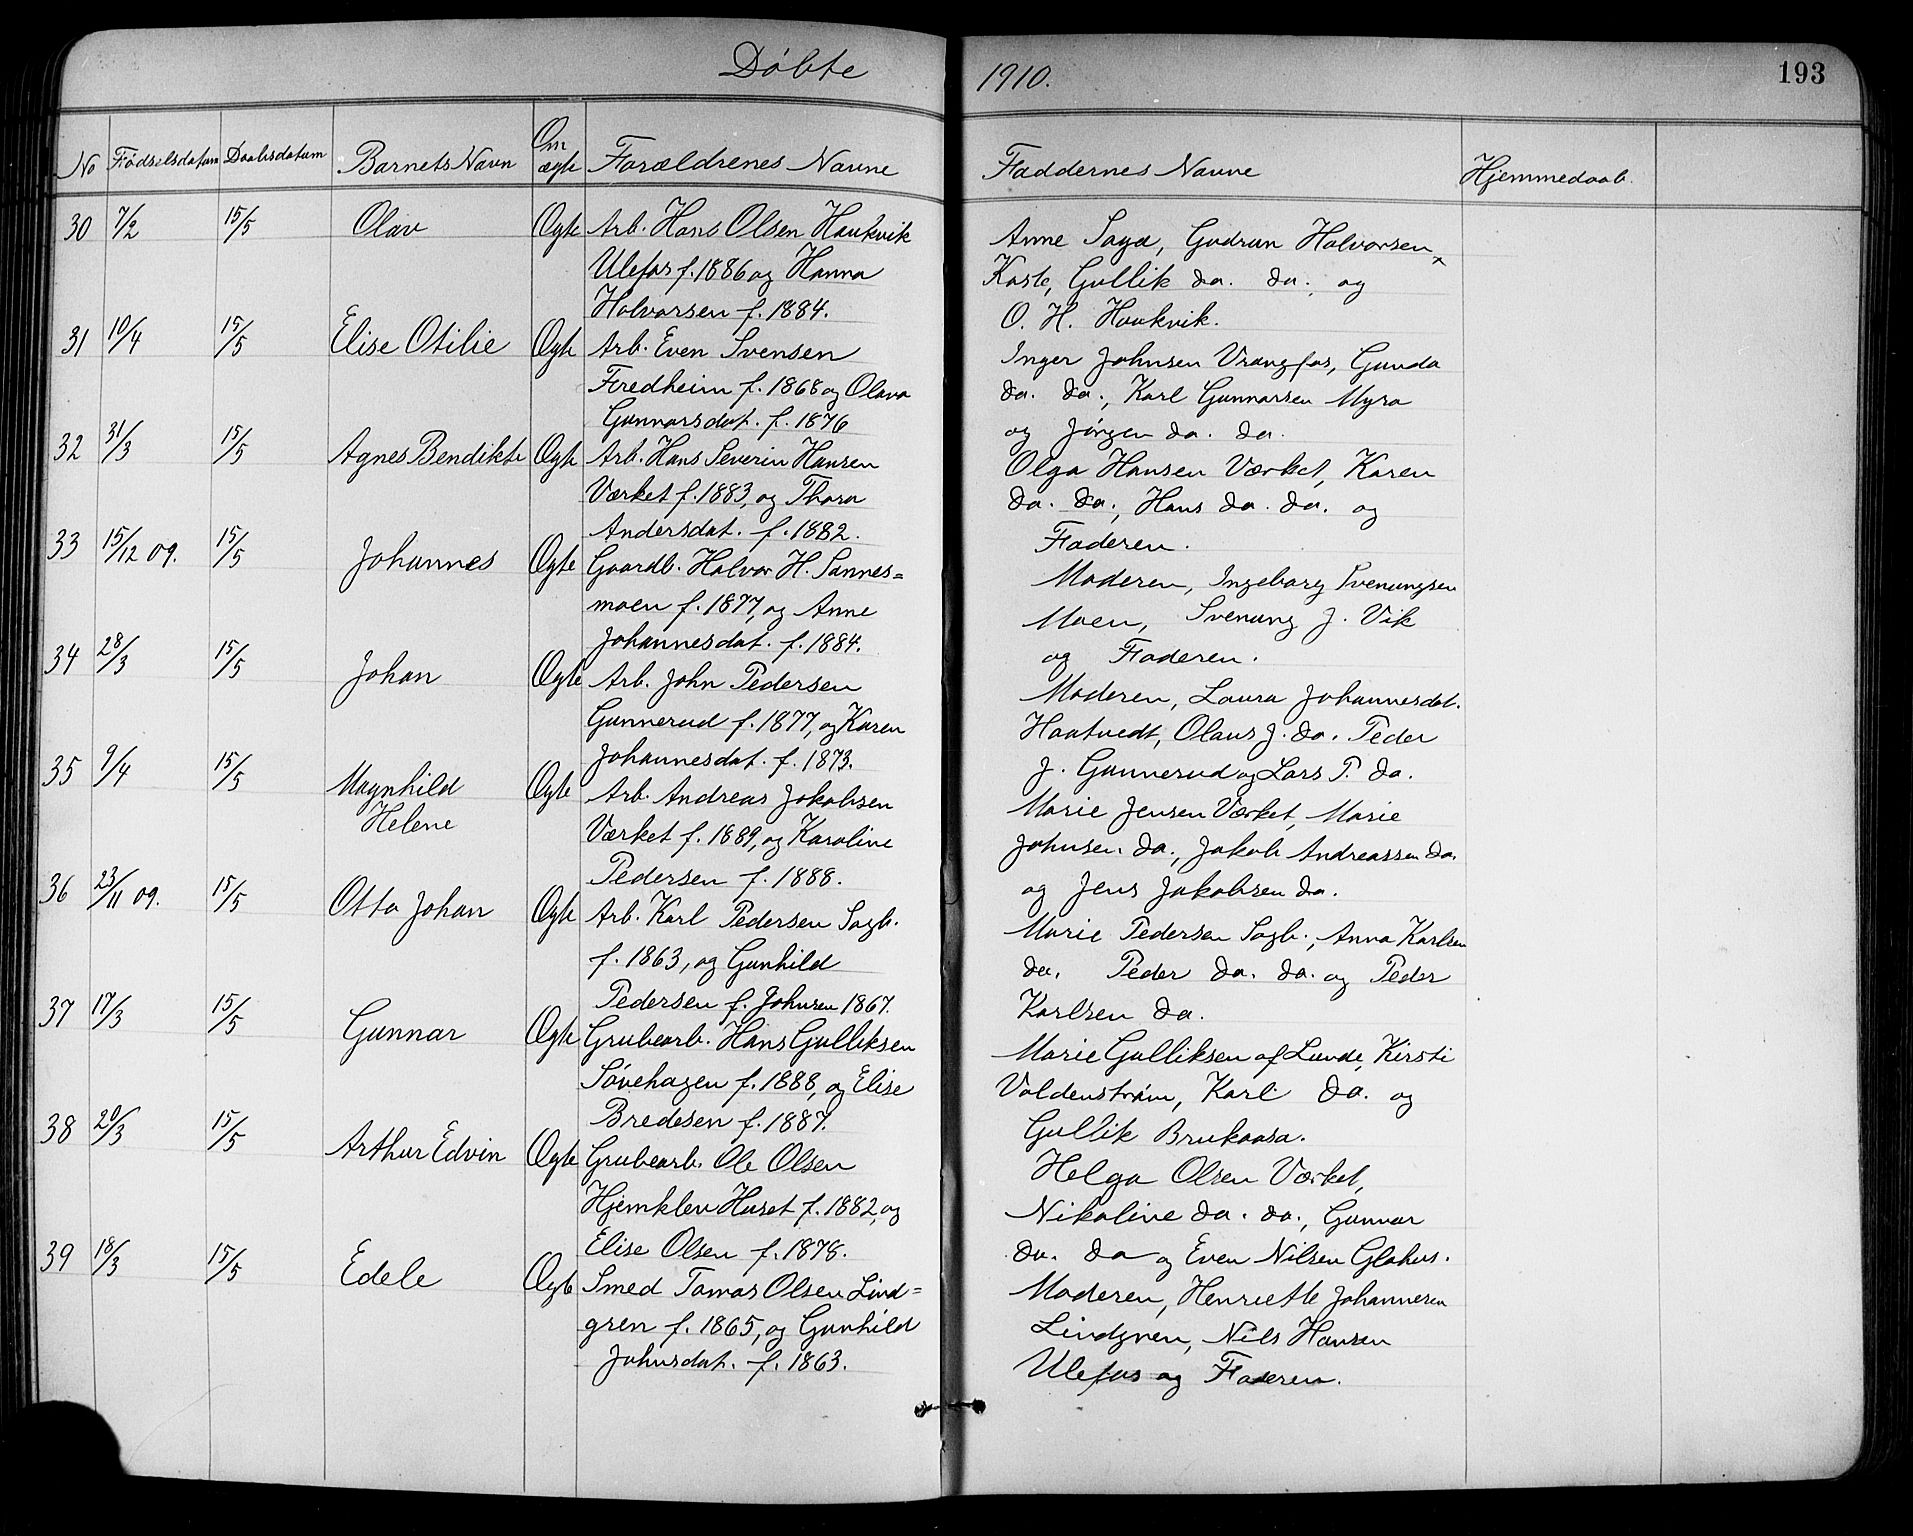 Døbte 1910. 193
No Fødselsdatum Daabsdatum Barnets Navn Om ægte Forældrenes Navne Faddernes Navne Hjemmedaab.
30 7/2 15/5 Olav Ægte Arb. Hans Olsen Haukvik Anne Saga, Gudrun Halvorsen,
Ulefos f. 1886 og Hanna Kaste, Gullik do. do., og
Halvorsen f. 1884. O. H. Haukvik.
31 10/4 15/5 Elise Otilie Ægte Arb. Even Svensen Inger Johnsen Vrangfos, Gunda
Fredheim f. 1868 og Olava do. do., Karl Gunnarsen Myra
Gunnarsdat. f. 1876 og Jørgen do. do.
32 31/3 15/5 Agnes Bendikte Ægte Arb. Hans Severin Hansen Olga Hansen Værket, Karen
Værket f. 1883, og Thora do. do., Hans do. do. og
Andersdat. f. 1882. Faderen.
33 15/12 09. 15/5 Johannes Ægte Gaardb. Halvor H. Sannes= Moderen, Ingeborg Svenungsen
moen f. 1877, og Anne Moen, Svenung J. Vik
Johannesdat. f. 1884. og Faderen.
34 28/3 15/5 Johan Ægte Arb. John Pedersen Moderen, Laura Johannesdat.
Gunnerud f. 1877, og Karen Hoatvedt, Olaus J. do. Peder
Johannesdat. f. 1873. J. Gunnerud og Lars P. do.
35 9/4 15/5 Magnhild Ægte Arb. Andreas Jakobsen Marie Jensen Værket, Marie
Helene Værket f. 1889, og Karoline Johnsen do., Jakob Andreassen do.
Pedersen f. 1888. og Jens Jakobsen do.
36 23/11 09. 15/5 Otto Johan Ægte Arb. Karl Pedersen Sagb. Marie Pedersen Sagb., Anna Karlsen
f. 1863, og Gunhild do. Peder do. do. og Peder
Pedersen f. Johnsen 1867. Karlsen do.
37 17/3 15/5 Gunnar Ægte Grubearb. Hans Gulliksen Marie Gulliksen af Lunde, Kirsti
Søvehagen f. 1888, og Elise Valdenstrøm, Karl do. og
Bredesen f. 1887. Gullik Brukaasa.
38 20/3 15/5 Arthur Edvin Ægte Grubearb. Ole Olsen Helga Olsen Værket,
Hjemklev Huset f. 1882, og Nikoline do. do., Gunnar
Elise Olsen f. 1878. do. do og Even Nilsen Glahus.
39 18/3 15/5 Edele Ægte Smed Tomas Olsen Lind= Moderen, Henriette Johannesen
gren f. 1865, og Gunhild Lindgren, Nils Hansen
Johnsdat. f. 1863. Ulefos og Faderen.